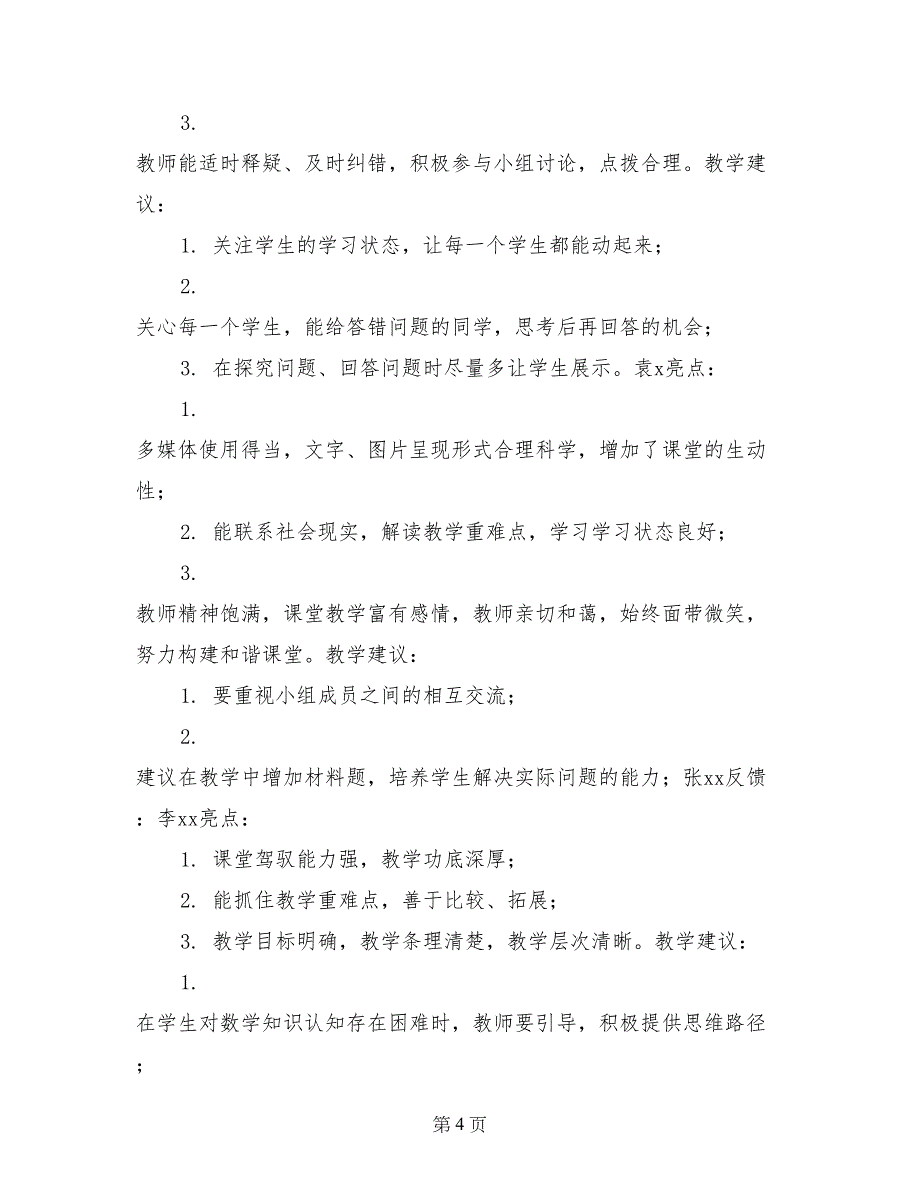 3.
教师能适时释疑、及时纠错，积极参与小组讨论，点拨合理。教学建
议：
1. 关注学生的学习状态，让每一个学生都能动起来；
2.
关心每一个学生，能给答错问题的同学，思考后再回答的机会；
3. 在探究问题、回答问题时尽量多让学生展示。袁x亮点：
1.
多媒体使用得当，文字、图片呈现形式合理科学，增加了课堂的生动
性；
2. 能联系社会现实，解读教学重难点，学习学习状态良好；
3.
教师精神饱满，课堂教学富有感情，教师亲切和蔼，始终面带微笑，
努力构建和谐课堂。教学建议：
1. 要重视小组成员之间的相互交流；
2.
建议在教学中增加材料题，培养学生解决实际问题的能力；张xx反馈
：李xx亮点：
1. 课堂驾驭能力强，教学功底深厚；
2. 能抓住教学重难点，善于比较、拓展；
3. 教学目标明确，教学条理清楚，教学层次清晰。教学建议：
1.
在学生对数学知识认知存在困难时，教师要引导，积极提供思维路径
；
第 4 页